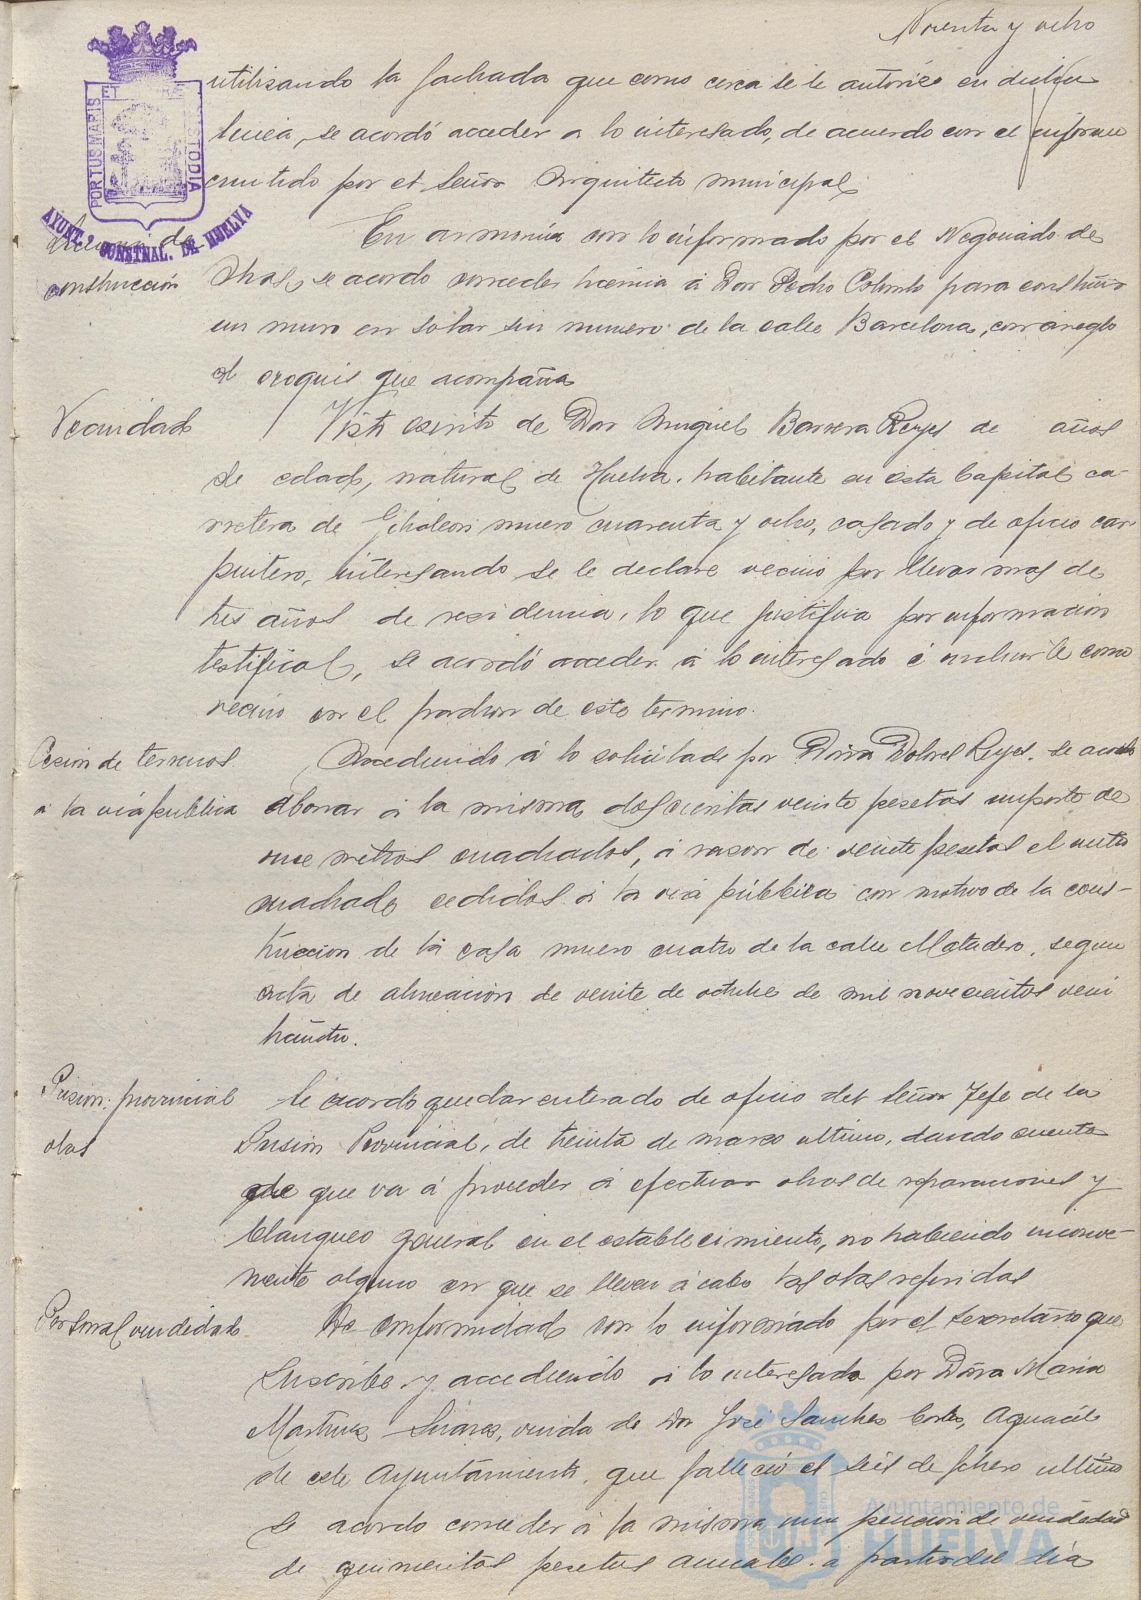 Noventa y ocho
PORTUS MARIS ET TERRAE CUSTODIA
AYUNT.º CONSTNAL. DE HUELVA
utilizando la fachada que como cerca se le autorice en dicha
licencia, se acordó acceder a lo interesado, de acuerdo con el informe
emitido por el Señor Arquitecto municipal
Licencia de
construcción
En armonía con lo informado por el Negociado de
Obras, se acordo conceder licencia á Don Pedro Colombo para construir
un muro en solar sin numero de la calle Barcelona, con arreglo
al croquis que acompaña
Vecindad
Visto escrito de Don Miguel Barrera Reyes de años
de edad, natural de Huelva, habitante en esta Capital ca-
rretera de Gibraleon numero cuarenta y ocho, casado y de oficio car
pintero, interesando se le declare vecino por llevar mas de
tres años de residencia, lo que justifica por informacion
testifical, se acordó acceder á lo interesado é incluirle como
vecino en el padron de este termino.
Cesion de terrenos
a la via publica
Accediendo á lo solicitado por Doña Dolores Reyes, se acordo
abonar á la misma doscientas veinte pesetas importe de
once metros cuadrados, á razon de veinte pesetas el metro
cuadrado cedidos á la via pública con motivo de la cons-
truccion de la casa numero cuatro de la calle Matadero, segun
acta de alineacion de veinte de octubre de mil novecientos vein
ticuatro.
Prision provincial
obras
Se acordó quedar enterado de oficio del Señor Jefe de la
Prision Provincial, de treinta de marzo ultimo, dando cuenta
de que va á proceder á efectuar obras de reparaciones y
blanqueo general en el establecimiento, no habiendo inconve-
niente alguno en que se lleven á cabo las obras referidas
Personal viudedad
De conformidad con lo informado por el Secretario que
suscribe y accediendo á lo interesado por Doña Maria
Martinez Suarez, viuda de Don José Sanchez Cortes, Aguacil
de este Ayuntamiento, que falleció el seis de febrero ultimo
se acordo conceder á la misma una pension de viudedad
de quinientas pesetas anuales á partir del dia
Ayuntamiento de
HUELVA